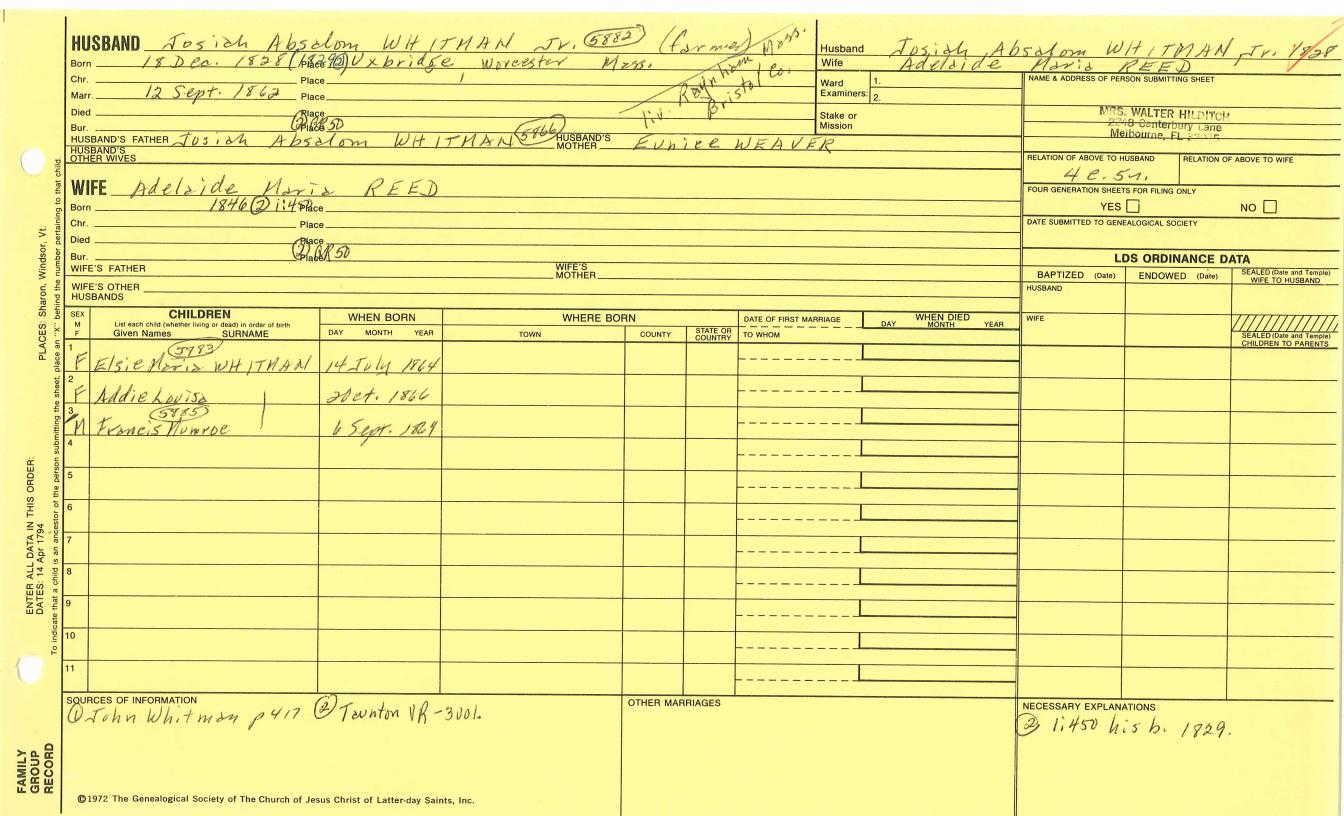 HUSBAND Josiah Absalom WHITMAN Jr. 5882 (farmer)
Born 18 Dec. 1828 (1829②) Place Uxbridge Worcester Mass.
Chr. Place
Marr. 12 Sept. 1862 Place
Died Place
Bur. Place ② GR50
liv. Raynham Mass.
Bristol Co.
HUSBAND'S FATHER Josiah Absalom WHITMAN 5866 HUSBAND'S MOTHER Eunice WEAVER
HUSBAND'S OTHER WIVES
Husband Josiah Absalom WHITMAN, Jr. 1828
Wife Adelaide Maria REED
Ward Examiners: 1.
2.
Stake or Mission
NAME & ADDRESS OF PERSON SUBMITTING SHEET
MRS. WALTER HILDITCH
Canterbury Lane
Melbourne, FL
RELATION OF ABOVE TO HUSBAND RELATION OF ABOVE TO WIFE
4 c. 5r.
FOUR GENERATION SHEETS FOR FILING ONLY
YES NO
DATE SUBMITTED TO GENEALOGICAL SOCIETY
WIFE Adelaide Maria REED
Born 1846 ② Place
Chr. Place
Died Place
Bur. Place ② GR50
WIFE'S FATHER WIFE'S MOTHER
WIFE'S OTHER HUSBANDS
LDS ORDINANCE DATA
BAPTIZED (Date) ENDOWED (Date) SEALED (Date and Temple) WIFE TO HUSBAND
HUSBAND
WIFE
SEALED (Date and Temple) CHILDREN TO PARENTS
SEX M F
CHILDREN
List each child (whether living or dead) in order of birth
Given Names SURNAME
WHEN BORN
DAY MONTH YEAR
WHERE BORN
TOWN COUNTY STATE OR COUNTRY
DATE OF FIRST MARRIAGE
TO WHOM
WHEN DIED
DAY MONTH YEAR
1 F Elsie Maria WHITMAN 5783 14 July 1864
2 F Addie Louisa 2 Oct. 1866
3 M Francis Munroe 5885 6 Sept. 1869
4
5
6
7
8
9
10
11
SOURCES OF INFORMATION
① John Whitman p 417 ② Taunton VR-3001.
OTHER MARRIAGES
NECESSARY EXPLANATIONS
② 1:450 his b. 1829.
©1972 The Genealogical Society of The Church of Jesus Christ of Latter-day Saints, Inc.
FAMILY GROUP RECORD
ENTER ALL DATA IN THIS ORDER:
DATES: 14 Apr 1794 PLACES: Sharon, Windsor, Vt.
To indicate that a child is an ancestor of the person submitting the sheet, place an "X" behind the number pertaining to that child.